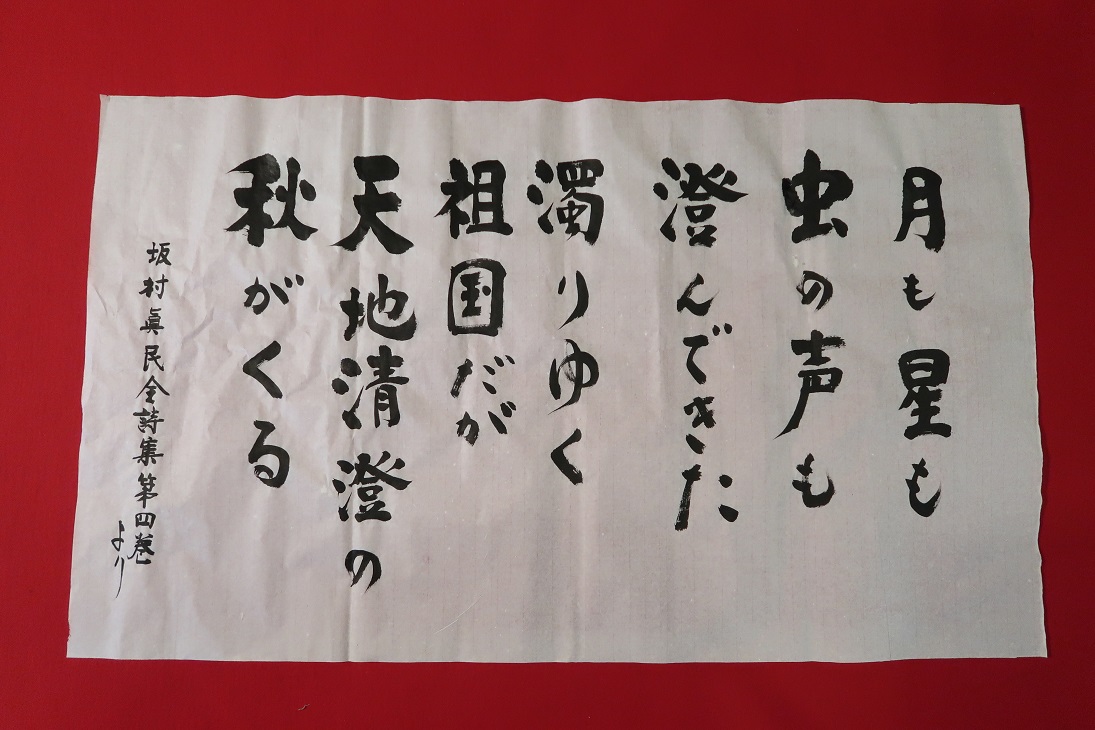 月も星も
虫の声も
澄んできた
濁りゆく
祖国だが
天地清澄の
秋がくる
坂村眞民全詩集第四巻
より